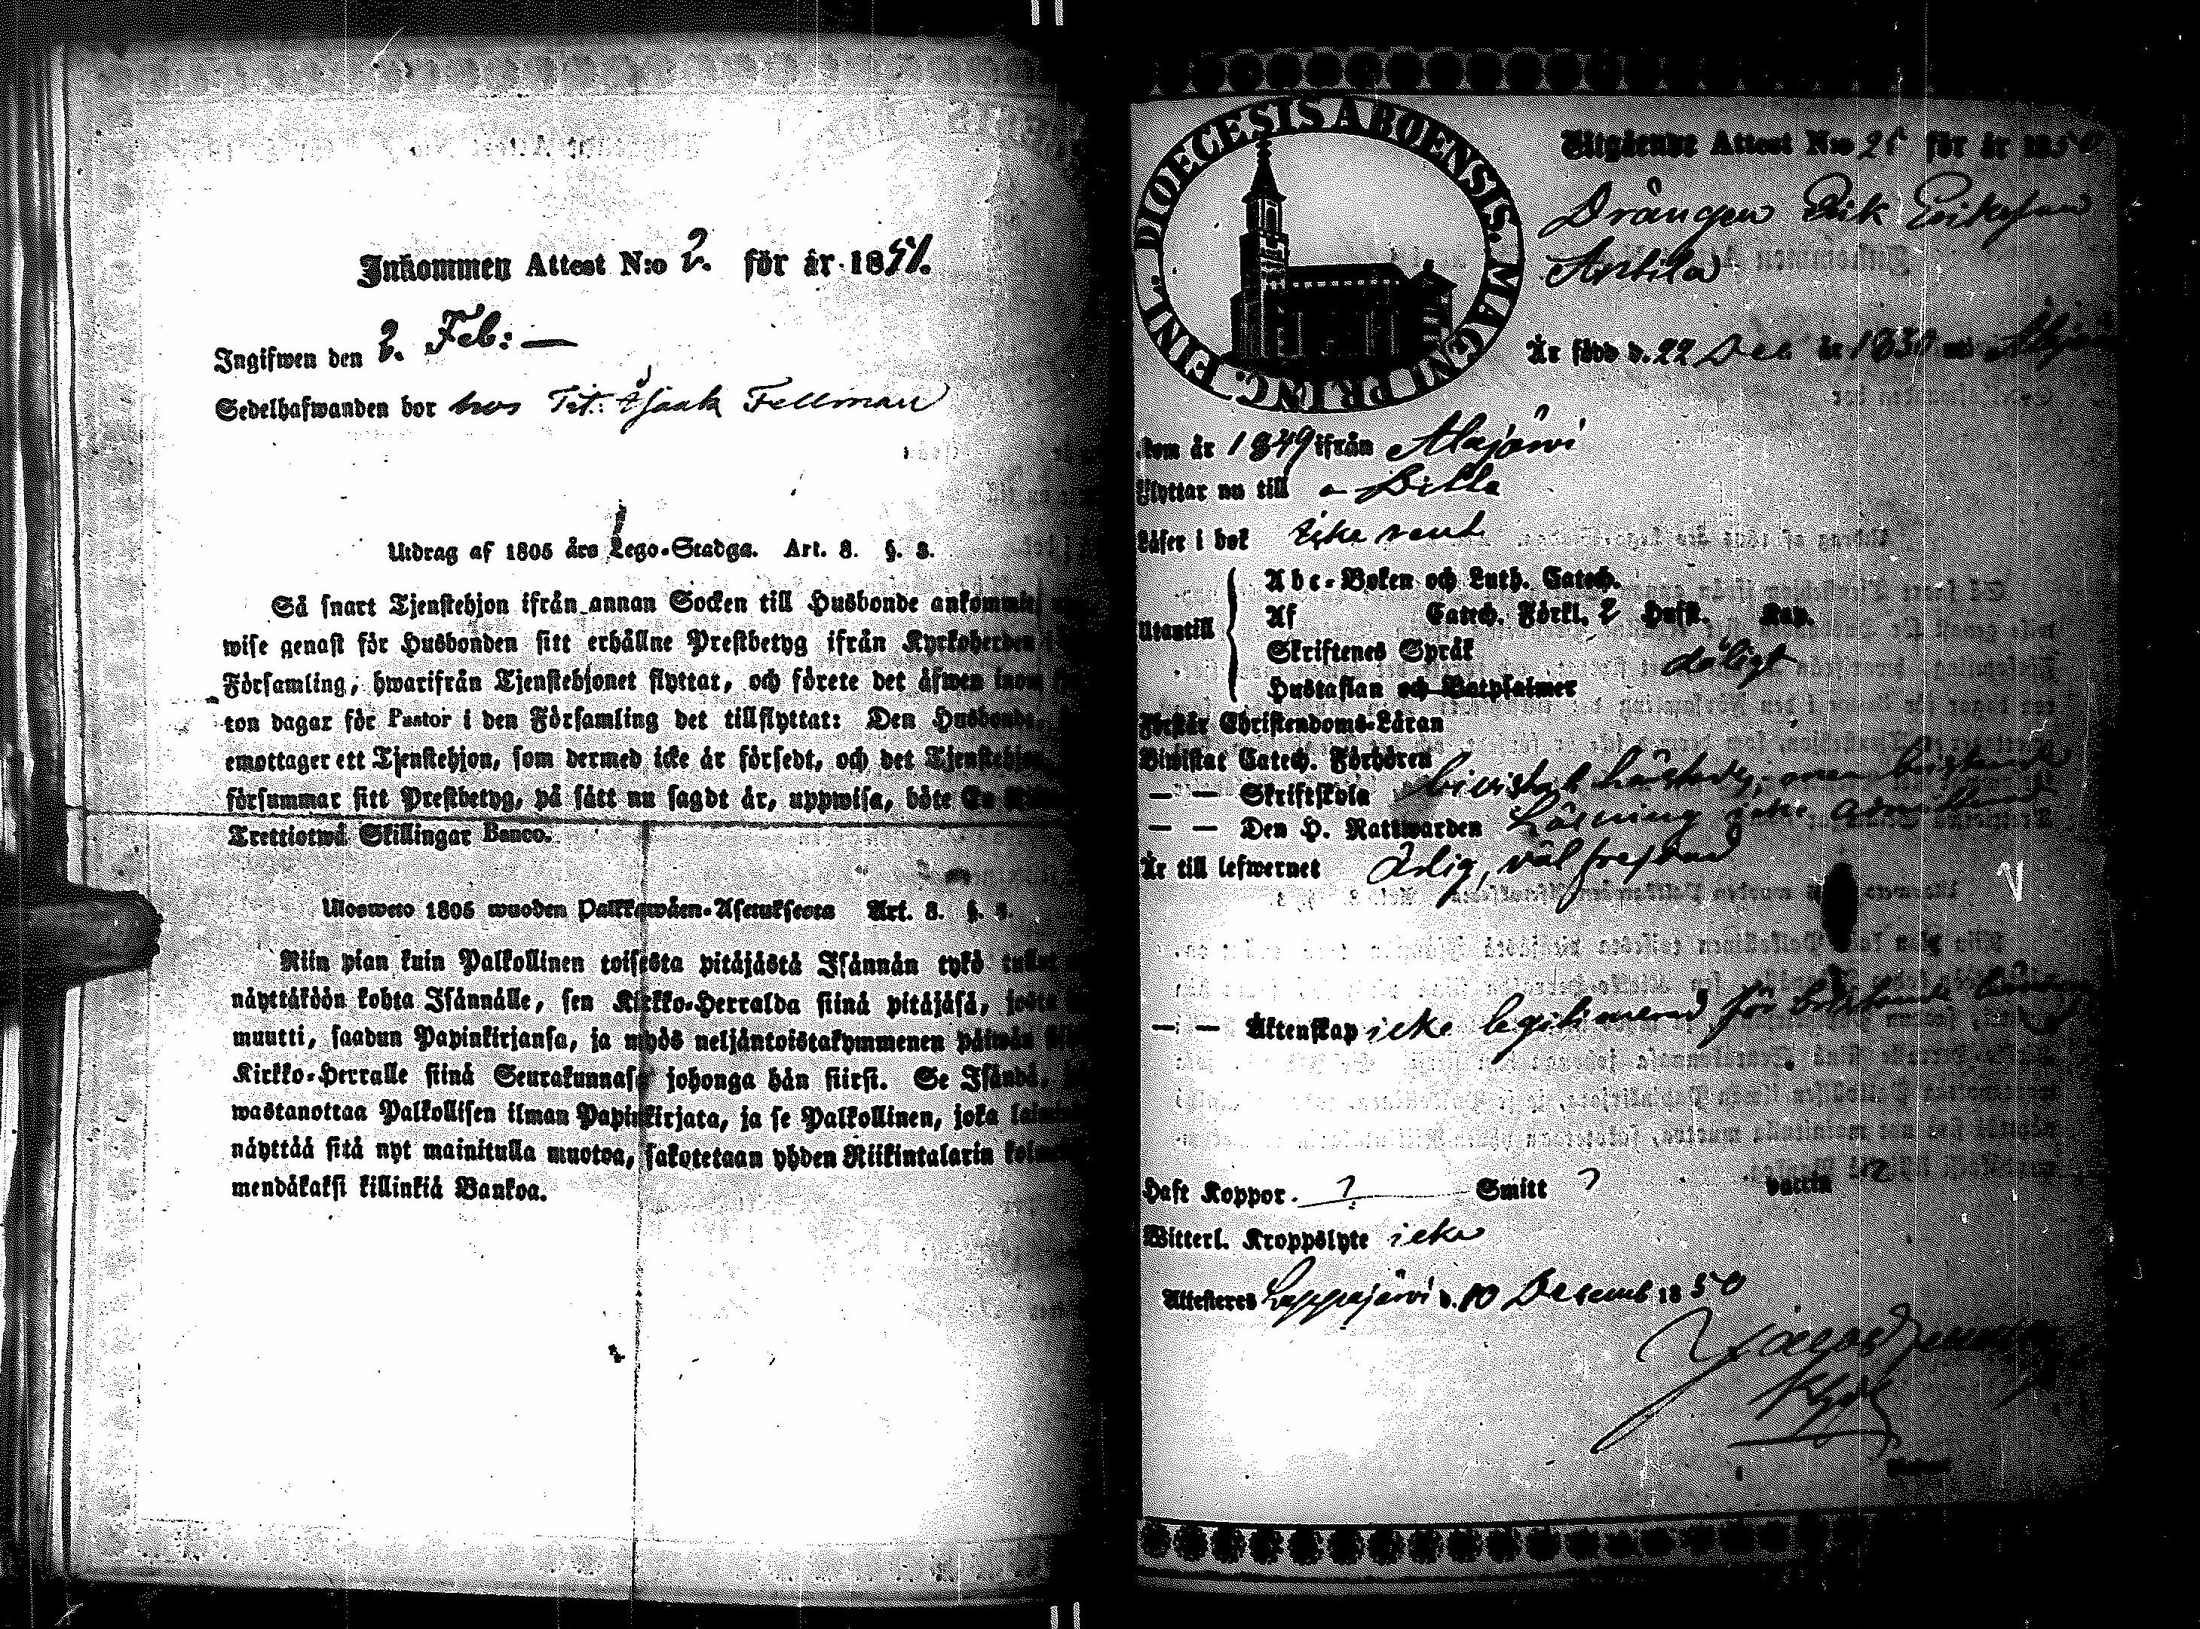 Inkommen Attest N:o 2. för år 1851.
Ingifwen den 2. Feb: —
Sedelhafwanden bor hos Tit: Isaak Fellman
Utdrag af 1805 års Lego-Stadga. Art. 3. §. 3.
Så snart Tjenstehjon ifrån annan Socken till Husbonde ankommit,
wise genast för Husbonden sitt erhållne Prestbetyg ifrån Kyrkoherden i
Församling, hwarifrån Tjenstehjonet flyttat, och förete det äfwen inom
ton dagar för Pastor i den Församling det tillflyttat: Den Husbonde,
emottager ett Tjenstehjon, som dermed icke är försedt, och det Tjenstehjon,
försummar sitt Prestbetyg, på sätt nu sagdt är, uppwisa, böte En
Trettiotwå Skillingar Banco.
Ulosweto 1805 wuoden Palkkawäen-Asetuksesta Art. 3. §.
Niin pian kuin Palkollinen toisesta pitäjästä Isännän tykö
näyttäköön kohta Isännälle, sen Kirkko-Herralda siinä pitäjäsä, josta
muutti, saadun Papinkirjansa, ja myös neljäntoistakymmenen päiwän
Kirkko-Herralle siinä Seurakunnasa johonga hän siirsi. Se Isändä,
wastanottaa Palkollisen ilman Papinkirjata, ja se Palkollinen, joka
näyttää sitä nyt mainitulla muotoa, sakotetaan yhden Riikintalarin
mendäkaksi killinkiä Bankoa.
DIOECESIS ABOENSIS. MAGNI PRINC. FINL.
Utgående Attest N:o 21 för år 1850
Drängen Erik Eriksson
Antila
Är född d. 22 Dec år 1830 uti
kom år 1849 ifrån Alajärvi
Flyttar nu till
Läser i bok icke rent
Utantill
Abc-Boken och Luth. Catech.
Af Catech. Förkl. 2 Hufst. Kap.
Skriftenes Språk dåligt
Hustaflan och Botpsalmer
Förstår Christendoms-Läran
Biwistat Catech. Förhören
— — Skriftskola bivistat men bristande
— — Den H. Nattwarden Läsning icke
Är till lefwernet ärlig, väl frejdad
— — Äktenskap icke legitimerad för bristande
Haft Koppor. ? Smitt ?
Witterl. Kroppslyte icke
Attesteras Lappajärvi d. 10 Decemb 1850